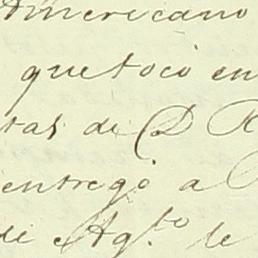 Americano
que tocó en
tas de D R
entregó a
de Ag.to de